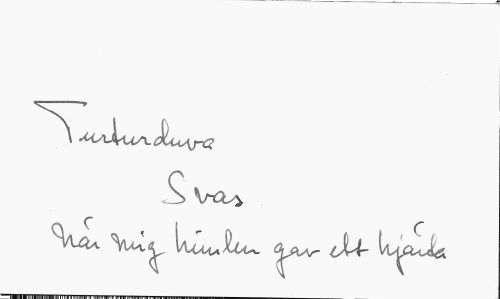 Turturduva
Svas
När mig himlen gav ett hjärta